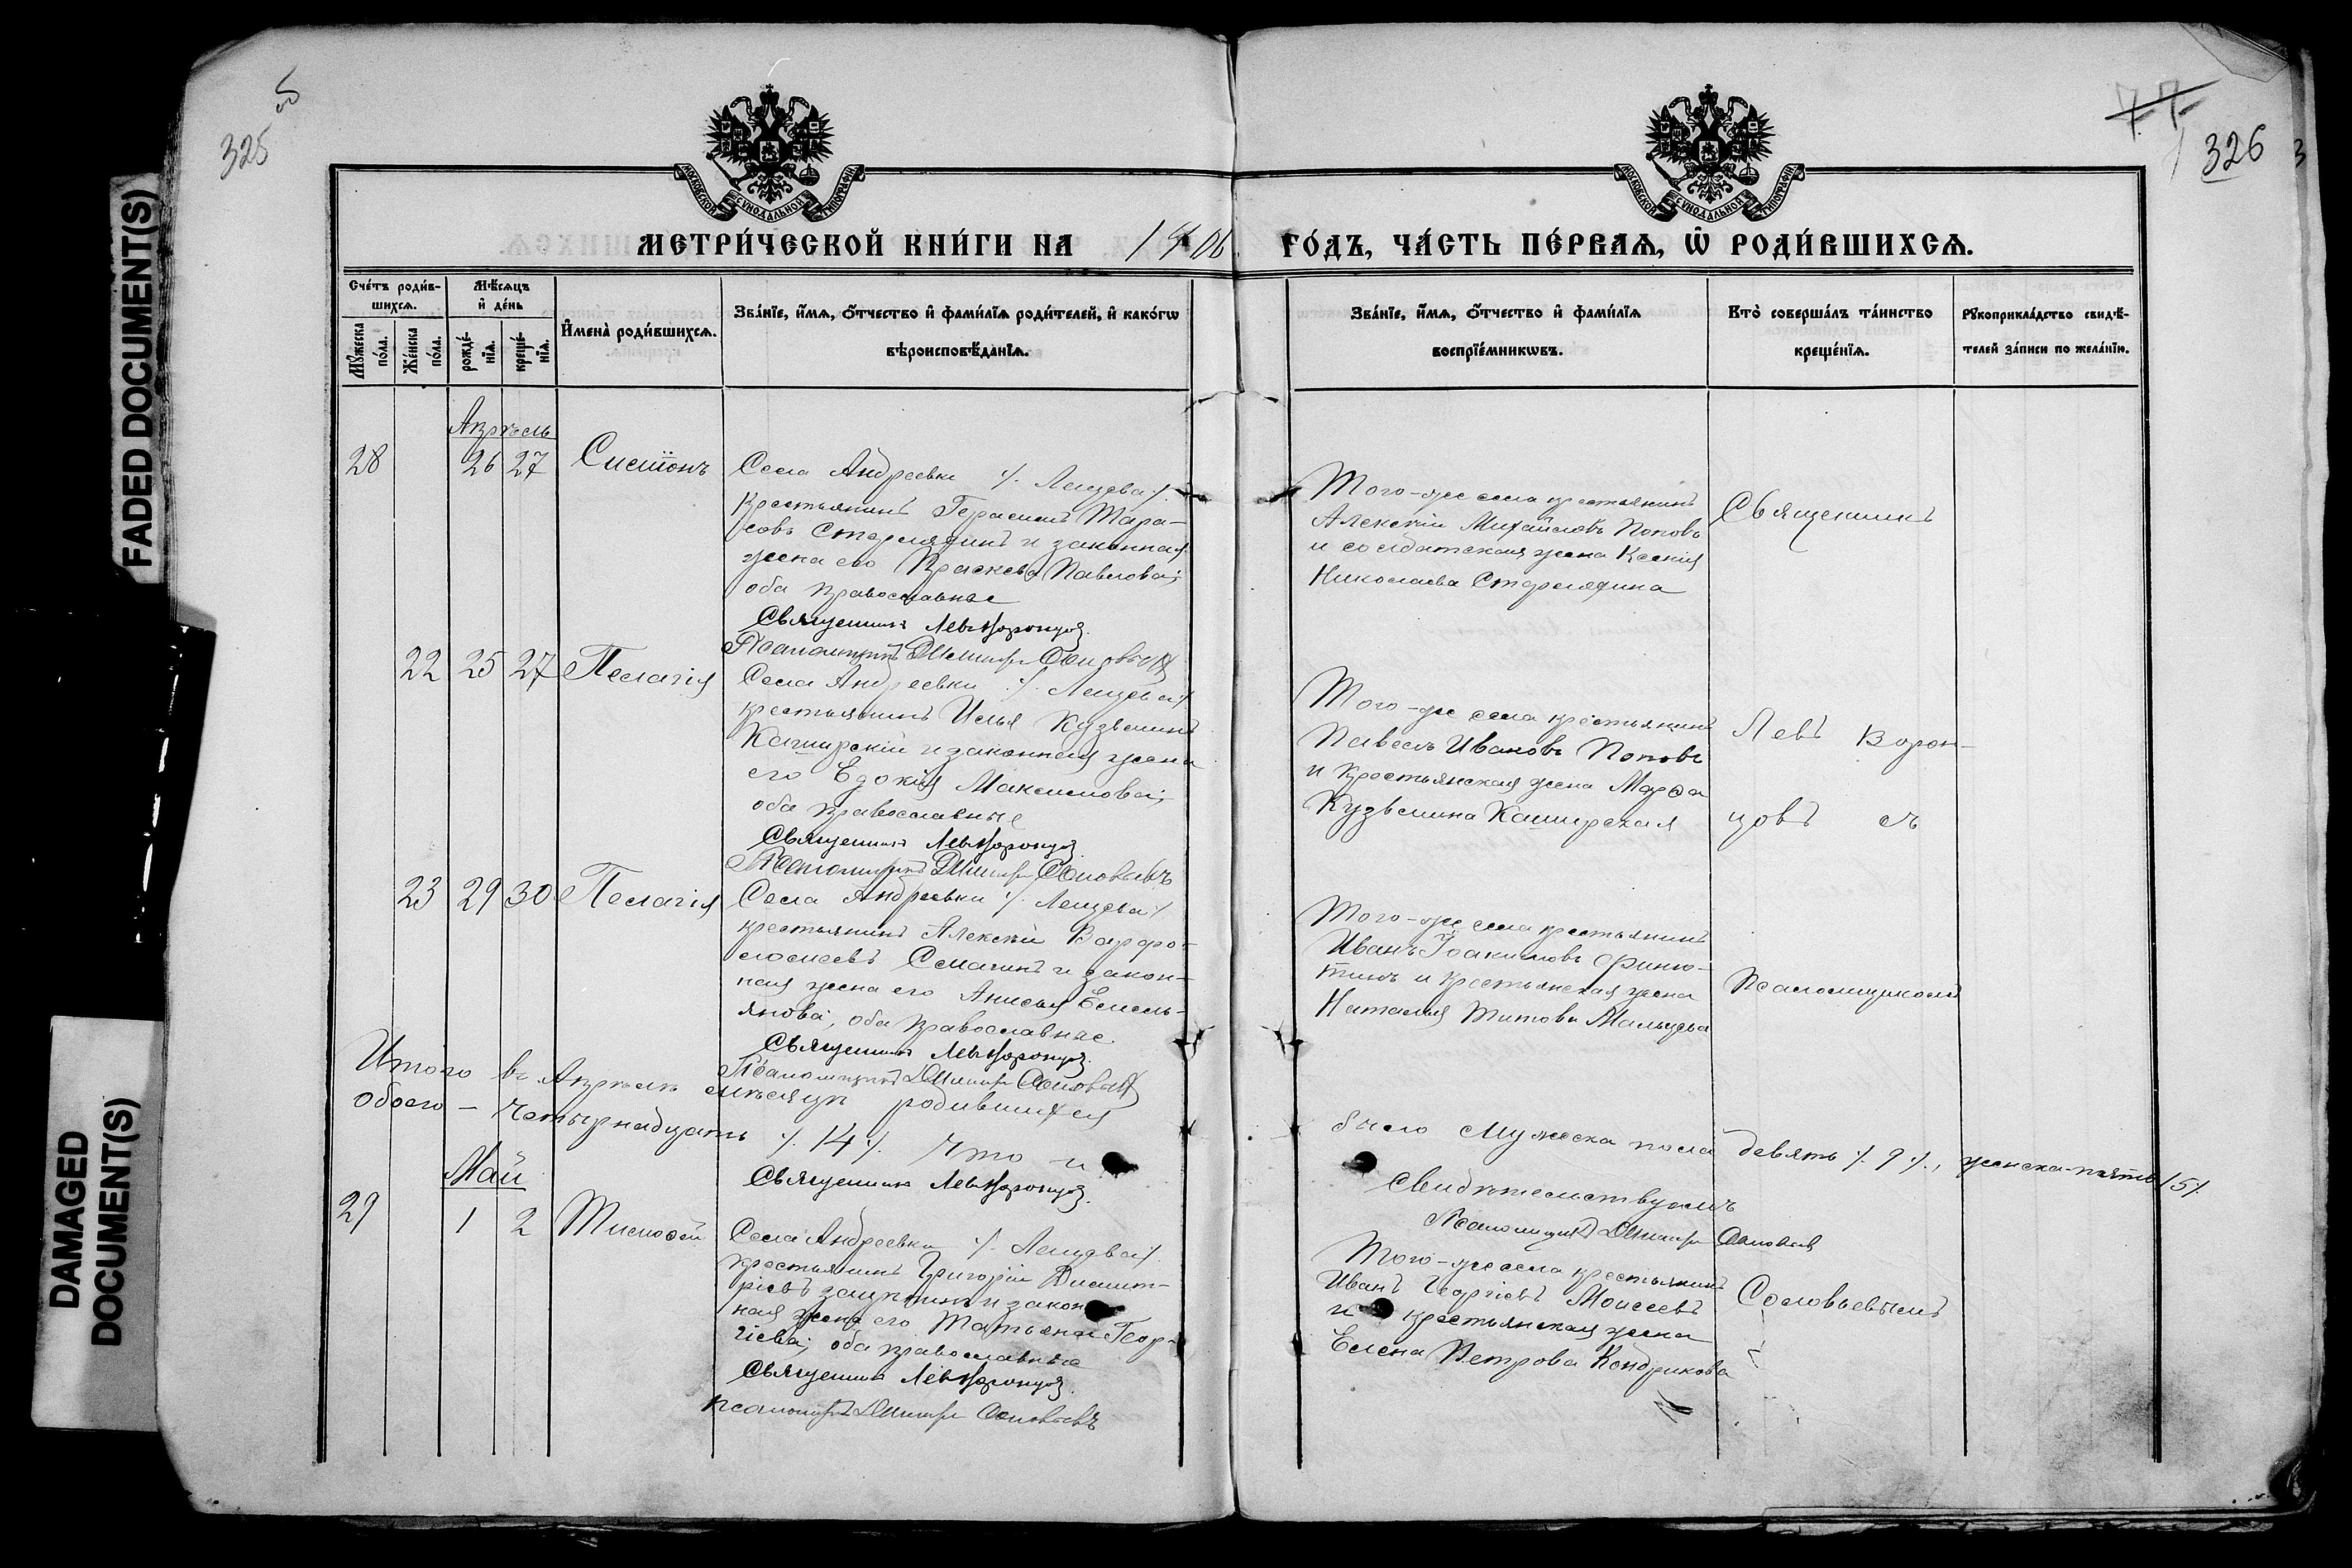 FADED DOCUMENT(S)
DAMAGED
DOCUMENT(S)
325
об
77
326
3
МОСКОВСКОЙ СѴНОДАЛЬНОЙ ТИПОГРАФІИ
МОСКОВСКОЙ СѴНОДАЛЬНОЙ ТИПОГРАФІИ
МЕТРИ́ЧЕСКОЙ КНИ́ГИ НА 1906
ГО́ДЪ, ЧА́СТЬ ПЕ́РВАѦ, Ѽ РОДИ́ВШИХСѦ.
Сче́тъ роди́в-
шихсѧ.
Мѣ́сѧцъ
и҆ де́нь
Мꙋ́жеска
по́ла.
Же́нска
по́ла.
рожде́-
нїѧ.
креще́-
нїѧ.
И҆мена̀ роди́вшихсѧ.
Зва́нїе, и҆́мѧ, ѻ҆́тчество и҆ фами́лїѧ роди́телей, и҆ како́гѡ
вѣроисповѣ́данїѧ.
Зва́нїе, и҆́мѧ, ѻ҆́тчество и҆ фами́лїѧ
воспрїе́мникѡвъ.
Кто̀ соверша́лъ та́инство
креще́нїѧ.
Рꙋкоприкла́дство свидѣ́-
телей за́писи по жела́нїю.
Апрѣль
28 26 27 Симеонъ
Села Андреевки /. Лещева /.
крестьянинъ Герасимъ Тара-
совъ Стерлядинъ и законная
жена его Праскева Павлова;
оба православные
Священникъ Левъ Воронцов.
Псаломщикъ Дмитрій Соловьевъ
Того-же села крестьянинъ
Алексѣй Михайловъ Поповъ
и солдатская жена Ксенія
Николаева Стерлядина
Священникъ
22 25 27 Пелагія
Села Андреевки /. Лещева /.
крестьянинъ Илья Кузьминъ
Каширскій и законная жена
его Евдокія Максимова;
оба православные
Священникъ Левъ Воронцов.
Псаломщикъ Дмитрій Соловьевъ
Того-же села крестьянинъ
Павелъ Ивановъ Поповъ
и крестьянская жена Марѳа
Кузьмина Каширская
Левъ Ворон-
цовъ съ
23 29 30 Пелагія
Села Андреевки /. Лещева /.
крестьянинъ Алексѣй Варфо-
ломеевъ Сомачинъ и закон-
ная жена его Анисья Емель-
янова; оба православные.
Священникъ Левъ Воронцов.
Псаломщикъ Дмитрій Соловьевъ
Того-же села крестьянинъ
Иванъ Іоакимовъ Финю-
тинъ и крестьянская жена
Наталия Титова Мальцева
Псаломщикомъ
Итого въ Апрѣлѣ мѣсяцѣ родившихся было мужеска пола девять /. 9 /., женска-пять /5/.
обоего - четырнадцать /. 14 /. Что и свидѣтельствуемъ
Священникъ Левъ Воронцов.
Псаломщикъ Дмитрій Соловьевъ
Май
29 1 2 Тимоѳей
Села Андреевки /. Лещева /.
крестьянинъ Григорій Димит-
ріевъ и закон-
ная жена его Татьяна Геор-
гіева; оба православные
Священникъ Левъ Воронцов.
Псаломщикъ Дмитрій Соловьевъ
Того-же села крестьянинъ
Иванъ Георгіевъ Моисеевъ
и крестьянская жена
Елена Петрова Кондрикова
Соловьевымъ